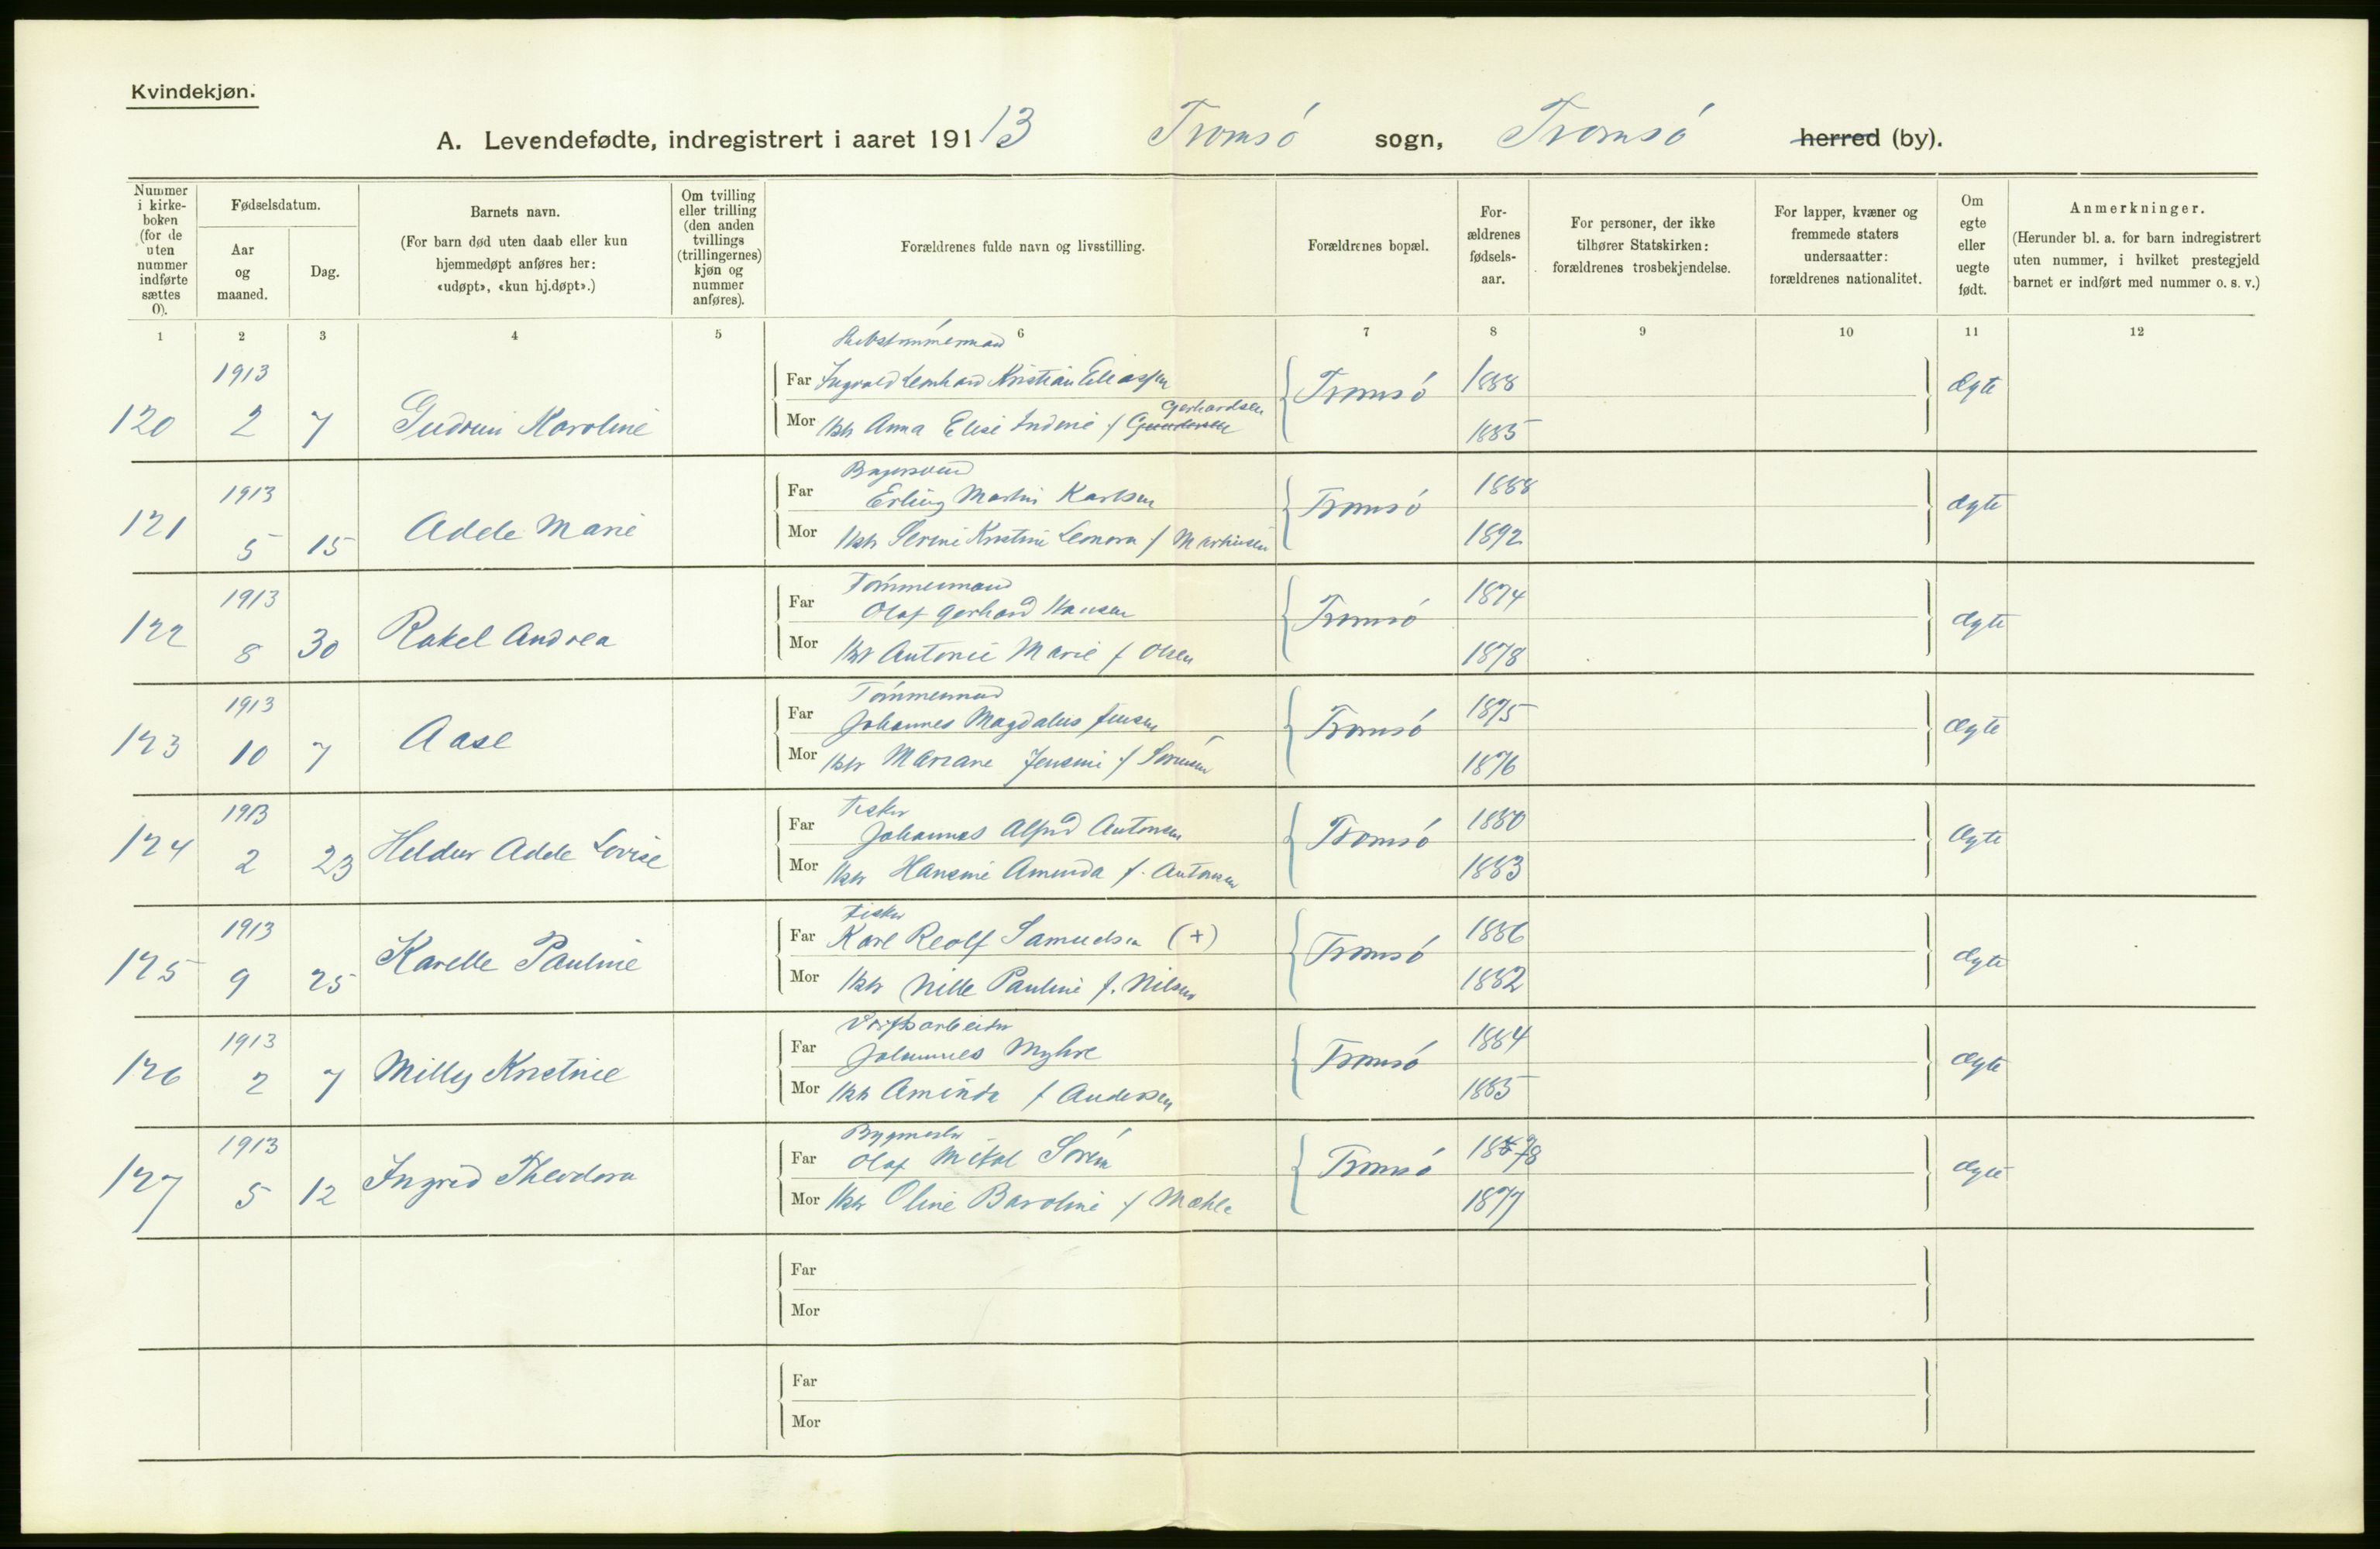 Kvindekjøn.
A. Levendefødte, indregistrert i aaret 191 13 Tromsø sogn, Tromsø herred (by).
Nummer i kirkeboken (for de uten nummer indførte sættes 0).
Fødselsdatum.
Aar og maaned.
Dag.
Barnets navn.
(For barn død uten daab eller kun hjemmedøpt anføres her: «udøpt», «kun hj.døpt».)
Om tvilling eller trilling (den anden tvillings (trillingernes) kjøn og nummer anføres).
Forældrenes fulde navn og livsstilling.
Forældrenes bopæl.
Forældrenes fødselsaar.
For personer, der ikke tilhører Statskirken: forældrenes trosbekjendelse.
For lapper, kvæner og fremmede staters undersaatter: forældrenes nationalitet.
Om egte eller uegte født.
Anmerkninger.
(Herunder bl. a. for barn indregistrert uten nummer, i hvilket prestegjeld barnet er indført med nummer o. s. v.)
1 2 3 4 5 6 7 8 9 10 11 12
Skibstømmermand
1913 Far Ingvald Leonhard Kristian Eliassen Tromsø 1888 Ægte
120 2 7 Gudrun Karoline Mor Anna Elise Indine f Gundersen Gerhardsen 1885
Bagersvend
1913 Far Erling Martin Karlsen Tromsø 1888 Ægte
121 5 15 Adele Marie Mor Serine Kristine Leonora f Martinsen 1892
Tømmermand
1913 Far Olaf Gerhard Hansen Tromsø 1874 Ægte
122 8 30 Rakel Andrea Mor Antonie Marie f Olsen 1878
Tømmermand
1913 Far Johannes Magdalus Jensen Tromsø 1875 Ægte
123 10 7 Aase Mor Mariane Jensine f Sørensen 1876
Fisker
1913 Far Johannes Alfred Antonsen Tromsø 1880 Ægte
124 2 23 Heldur Adele Lovise Mor Hansine Amunda f. Antonsen 1883
Fisker
1913 Far Karl Reolf Samuelsen (+) Tromsø 1886 Ægte
125 9 25 Karelle Pauline Mor Nille Pauline f. Nilsen 1882
Driftsarbeider
1913 Far Johannes Myhre Tromsø 1884 Ægte
126 2 7 Milly Kristine Mor Aminda f Andersen 1885
Bygmester
1913 Far Olaf Mikal Tromsø 1878 Ægte
127 5 12 Ingrid Theodora Mor Oline Baroline f Mæhle 1877
Far
Mor
Far
Mor